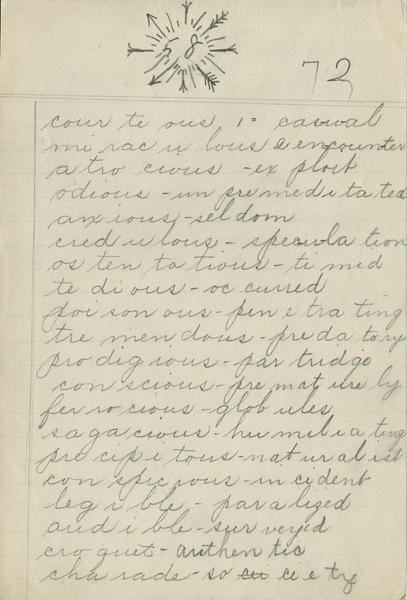 58
72
cour te ous 1= casual
mi rac u lous 2 encounter
a tro cious - ex ploit
odious - un pre med i ta ted
anxious - sel dom
cred u lous - specula tion
os ten ta tious - ti mid
te di ous - oc curred
poi son ous - pen e tra ting
tre men dous - pre da tory
pro dig ious - par tridge
con scious - pre mat ure ly
fer ro cious - glob ules
sa ga cious - hu mil i a ting
pre cip i tous - nat ur al ist
con spic ious - in cident
leg i ble - par a lized
aud i ble - sur veyed
cro quet - authen tic
cha rade - so ci e ty